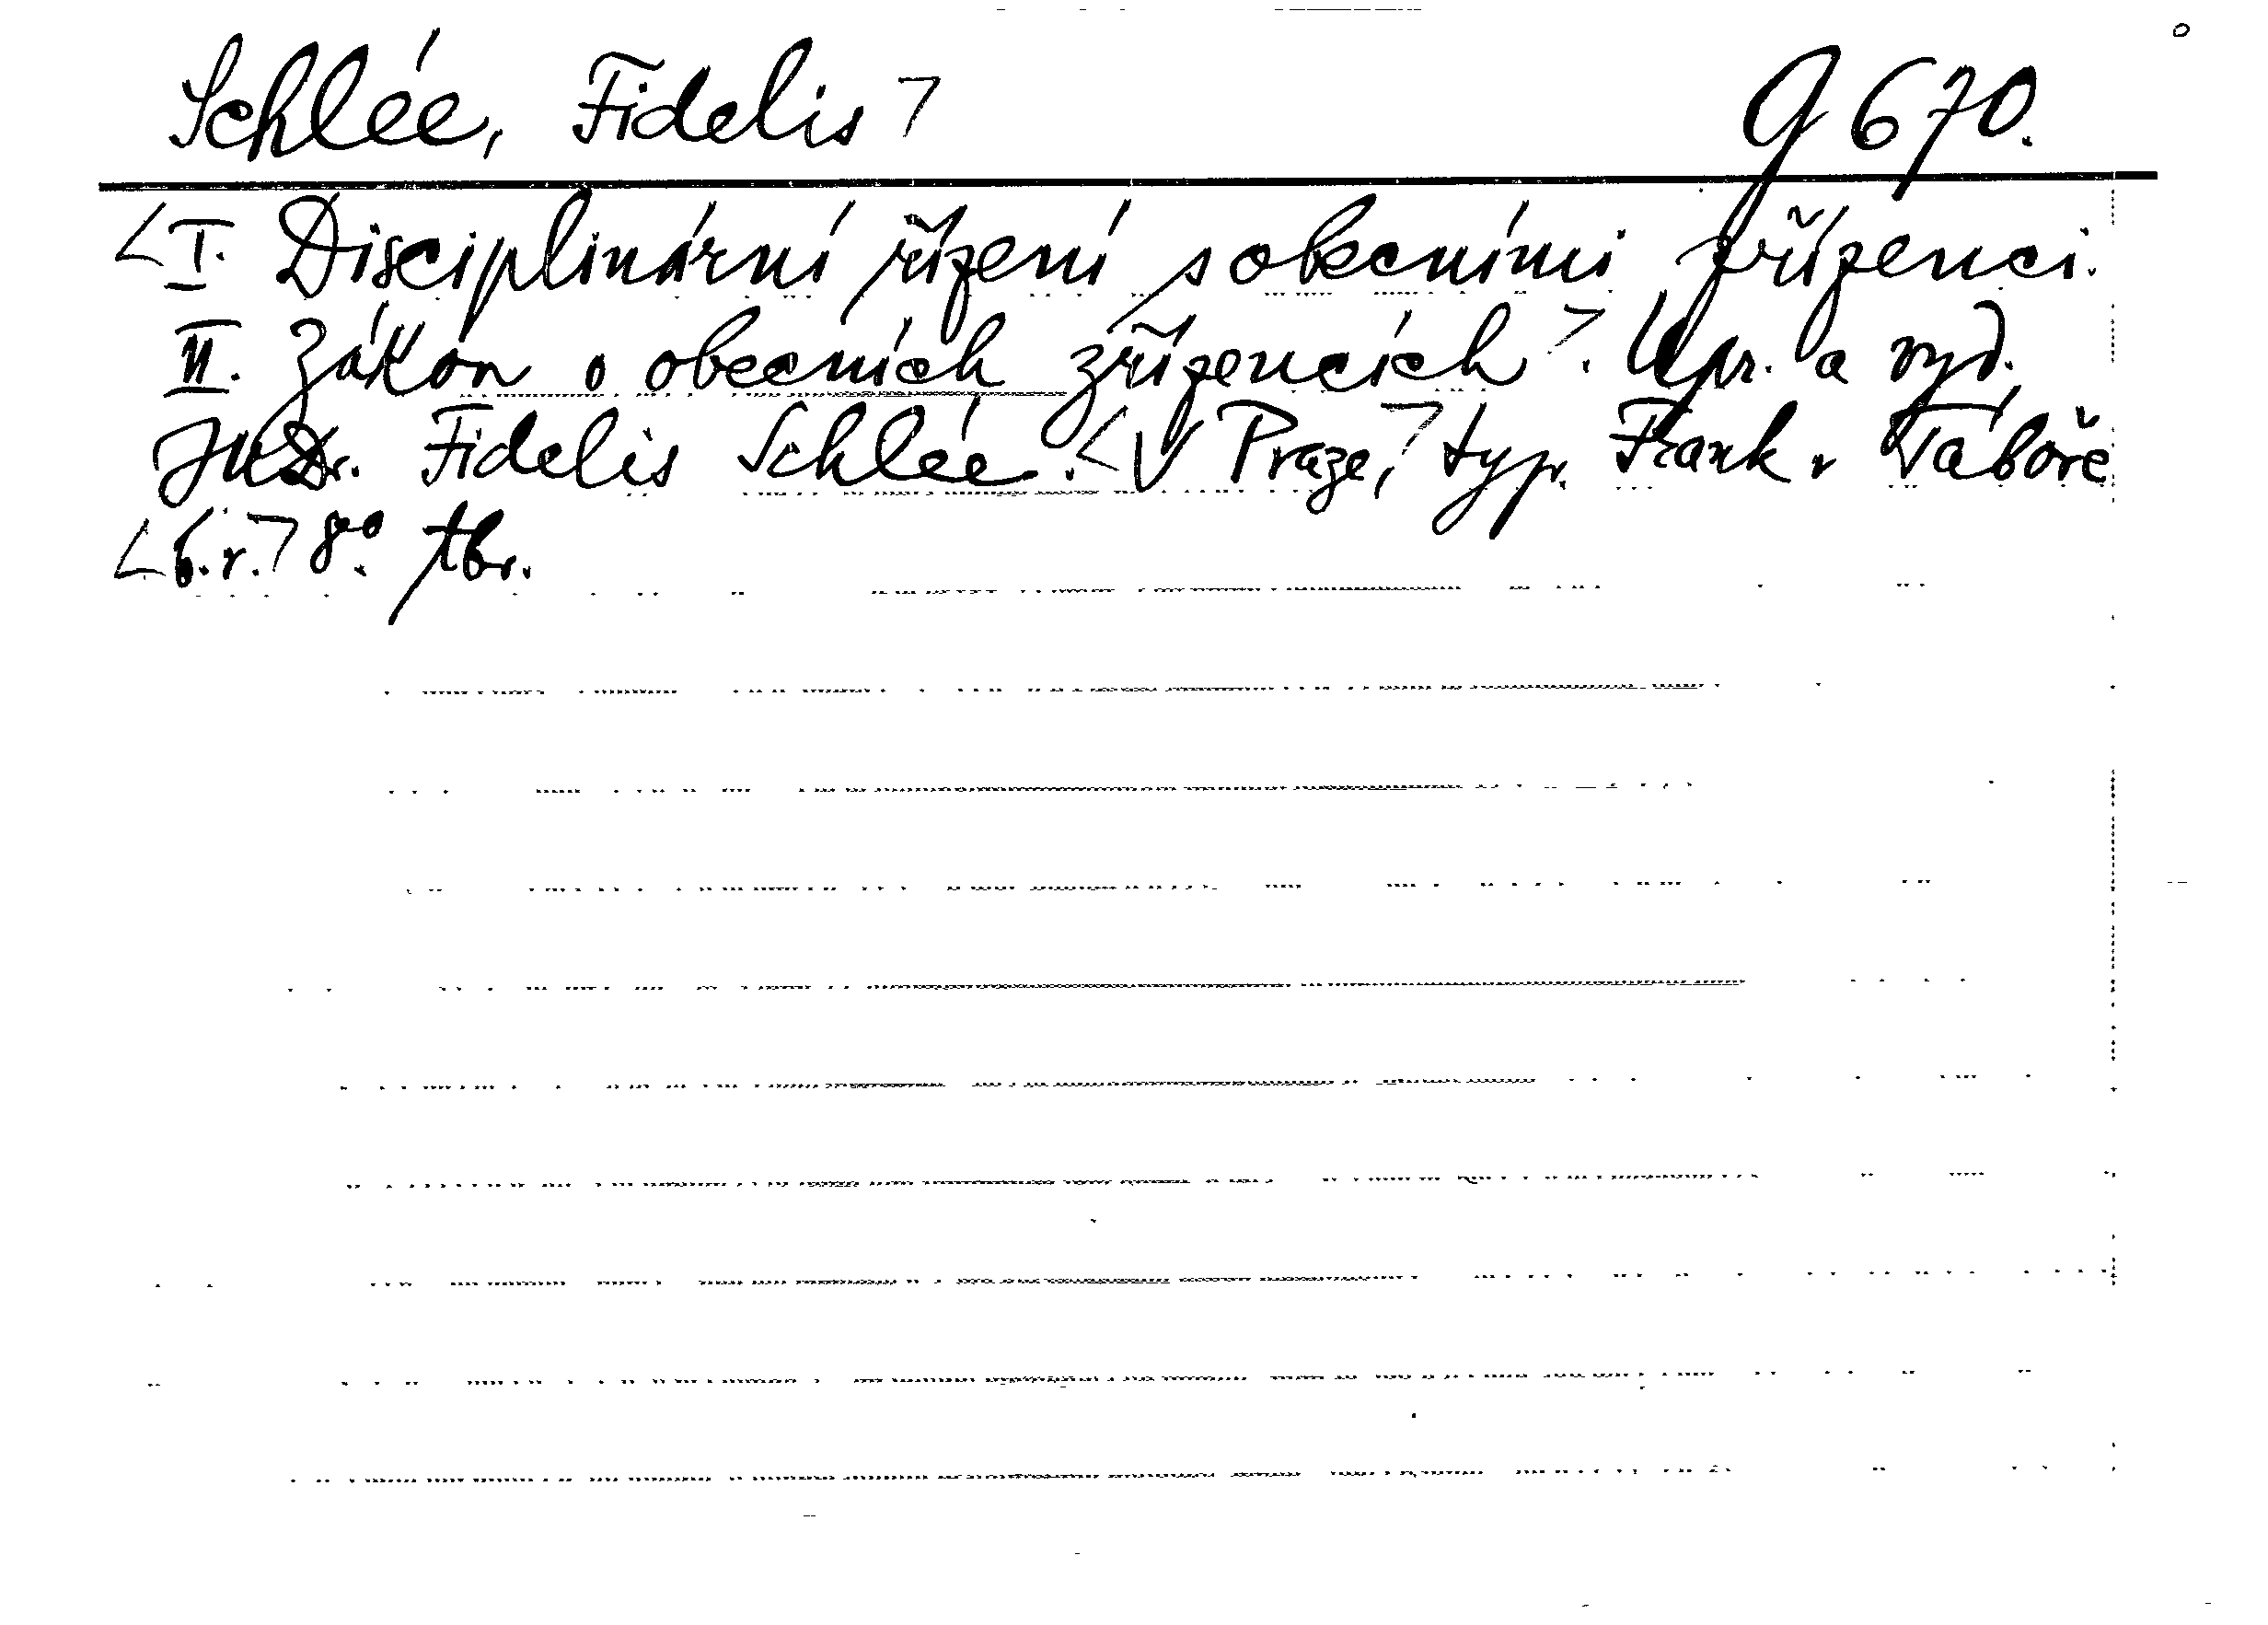 Schlée, Fidelis > g 670.
<I. Disciplinární řízení s obecními zřízenci.
II. Zákon o obecních zřízencích>. Upr. a vyd.
JUDr. Fidelis Schlée. <V Praze,> typ. Frank v Táboře
<b.r.> 8°. tbr.